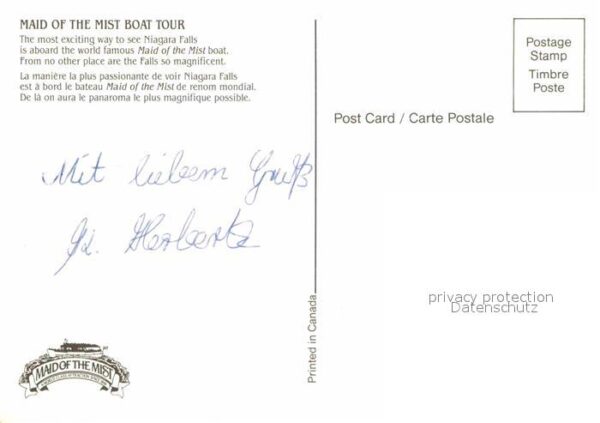 MAID OF THE MIST BOAT TOUR
The most exciting way to see Niagara Falls
is aboard the world famous Maid of the Mist boat.
From no other place are the Falls so magnificent.
La manière la plus passionante de voir Niagara Falls
est à bord le bateau Maid of the Mist de renom mondial.
De là on aura le panaroma le plus magnifique possible.
Mit liebem Gruß
Herbertz
Postage
Stamp
Timbre
Poste
Post Card / Carte Postale
Printed in Canada
privacy protection
Datenschutz
MAID OF THE MIST